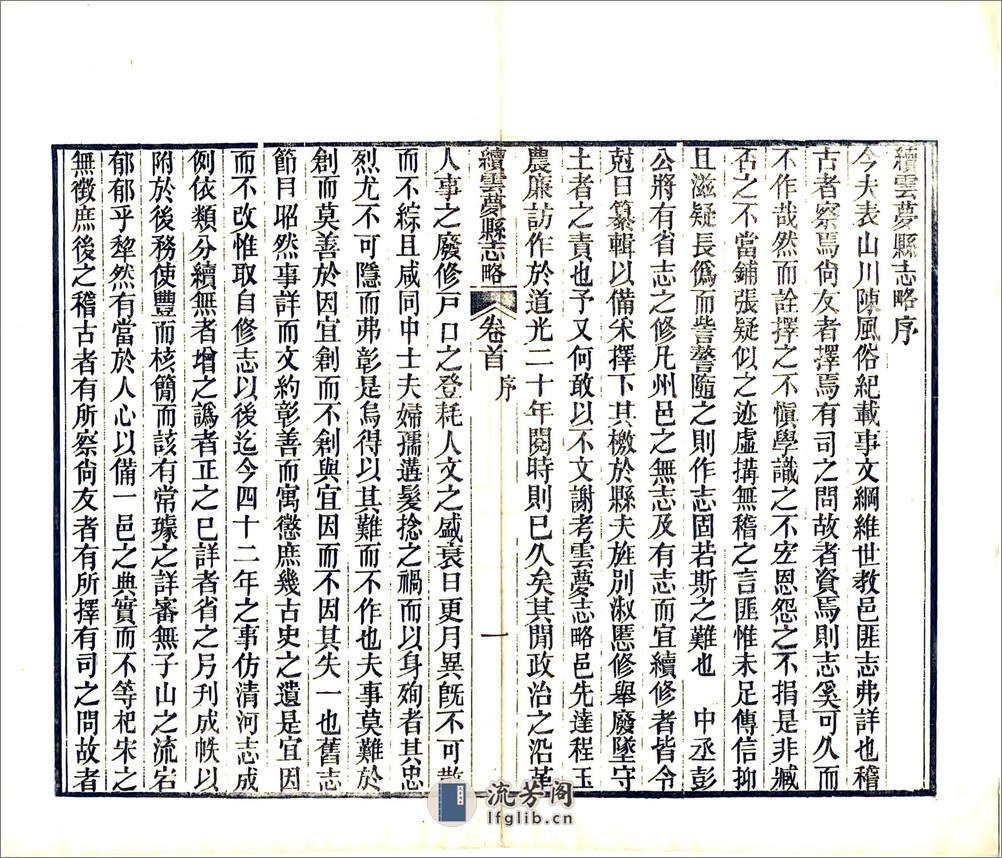 續雲夢縣志略序
今夫表山川陳風俗紀載事文綱維世教邑匪志弗詳也稽
古者察焉尙友者擇焉有司之問故者資焉則志奚可久而
不作哉然而詮擇之不愼學識之不宏恩怨之不捐是非臧
否之不當鋪張疑似之迹虛搆無稽之言匪惟未足傳信抑
且滋疑長僞而訾謷隨之則作志固若斯之難也　中丞彭
公將有省志之修凡州邑之無志及有志而宜續修者皆令
尅日纂輯以備采擇下其檄於縣夫旌別淑慝修舉廢墜守
土者之責也予又何敢以不文謝考雲夢志略邑先達程玉
農廉訪作於道光二十年閱時則已久矣其閒政治之沿革
續雲夢縣志略 卷首 序 一
人事之廢修戸口之登耗人文之盛衰日更月異旣不可散
而不綜且咸同中士夫婦孺遘髮捻之禍而以身殉者其忠
烈尤不可隱而弗彰是烏得以其難而不作也夫事莫難於
創而莫善於因宜創而不創與宜因而不因其失一也舊志
節目昭然事詳而文約彰善而寓懲庶幾古史之遺是宜因
而不改惟取自修志以後迄今四十二年之事仿清河志成
例依類分續無者增之譌者正之已詳者省之另刊成帙以
附於後務使豐而核簡而該有常璩之詳審無子山之流宕
郁郁乎犂然有當於人心以備一邑之典實而不等杞宋之
無徵庶後之稽古者有所察尙友者有所擇有司之問故者
流芳阁
lfglib.cn